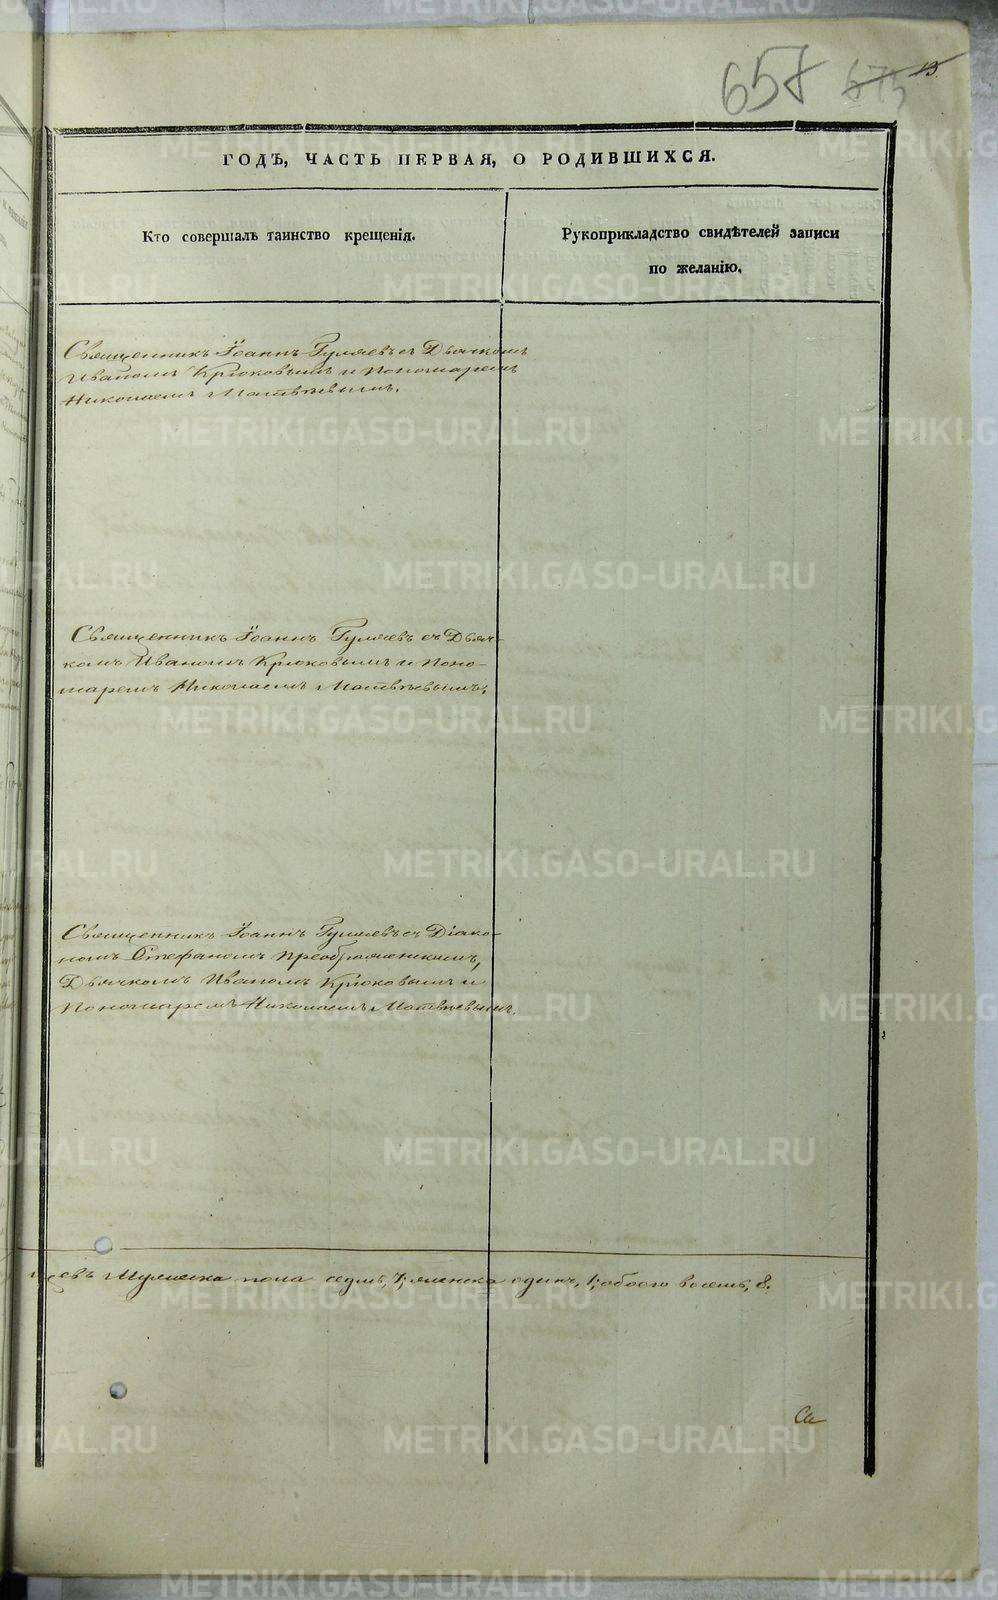 658 675 13.
ГОДЪ, ЧАСТЬ ПЕРВАЯ, О РОДИВШИХСЯ.
Кто совершалъ таинство крещенія.
Рукоприкладство свидѣтелей записи
по желанію.
Священникъ Іоаннъ Гуляевъ съ Дьячкомъ
Иваномъ Крюковымъ и Пономаремъ
Николаемъ Матвѣевымъ.
Священникъ Іоаннъ Гуляевъ съ Дьяч-
комъ Иваномъ Крюковымъ и Поно-
маремъ Николаемъ Матвѣевымъ.
Священникъ Іоаннъ Гуляевъ съ Діако-
номъ Стефаномъ Преображенскимъ,
Дьячкомъ Иваномъ Крюковымъ и
Пономаремъ Николаемъ Матвѣевымъ.
мужеска пола седмь, 7, женска одинъ, 1, обоего восемь, 8.
Са
METRIKI.GASO-URAL.RU